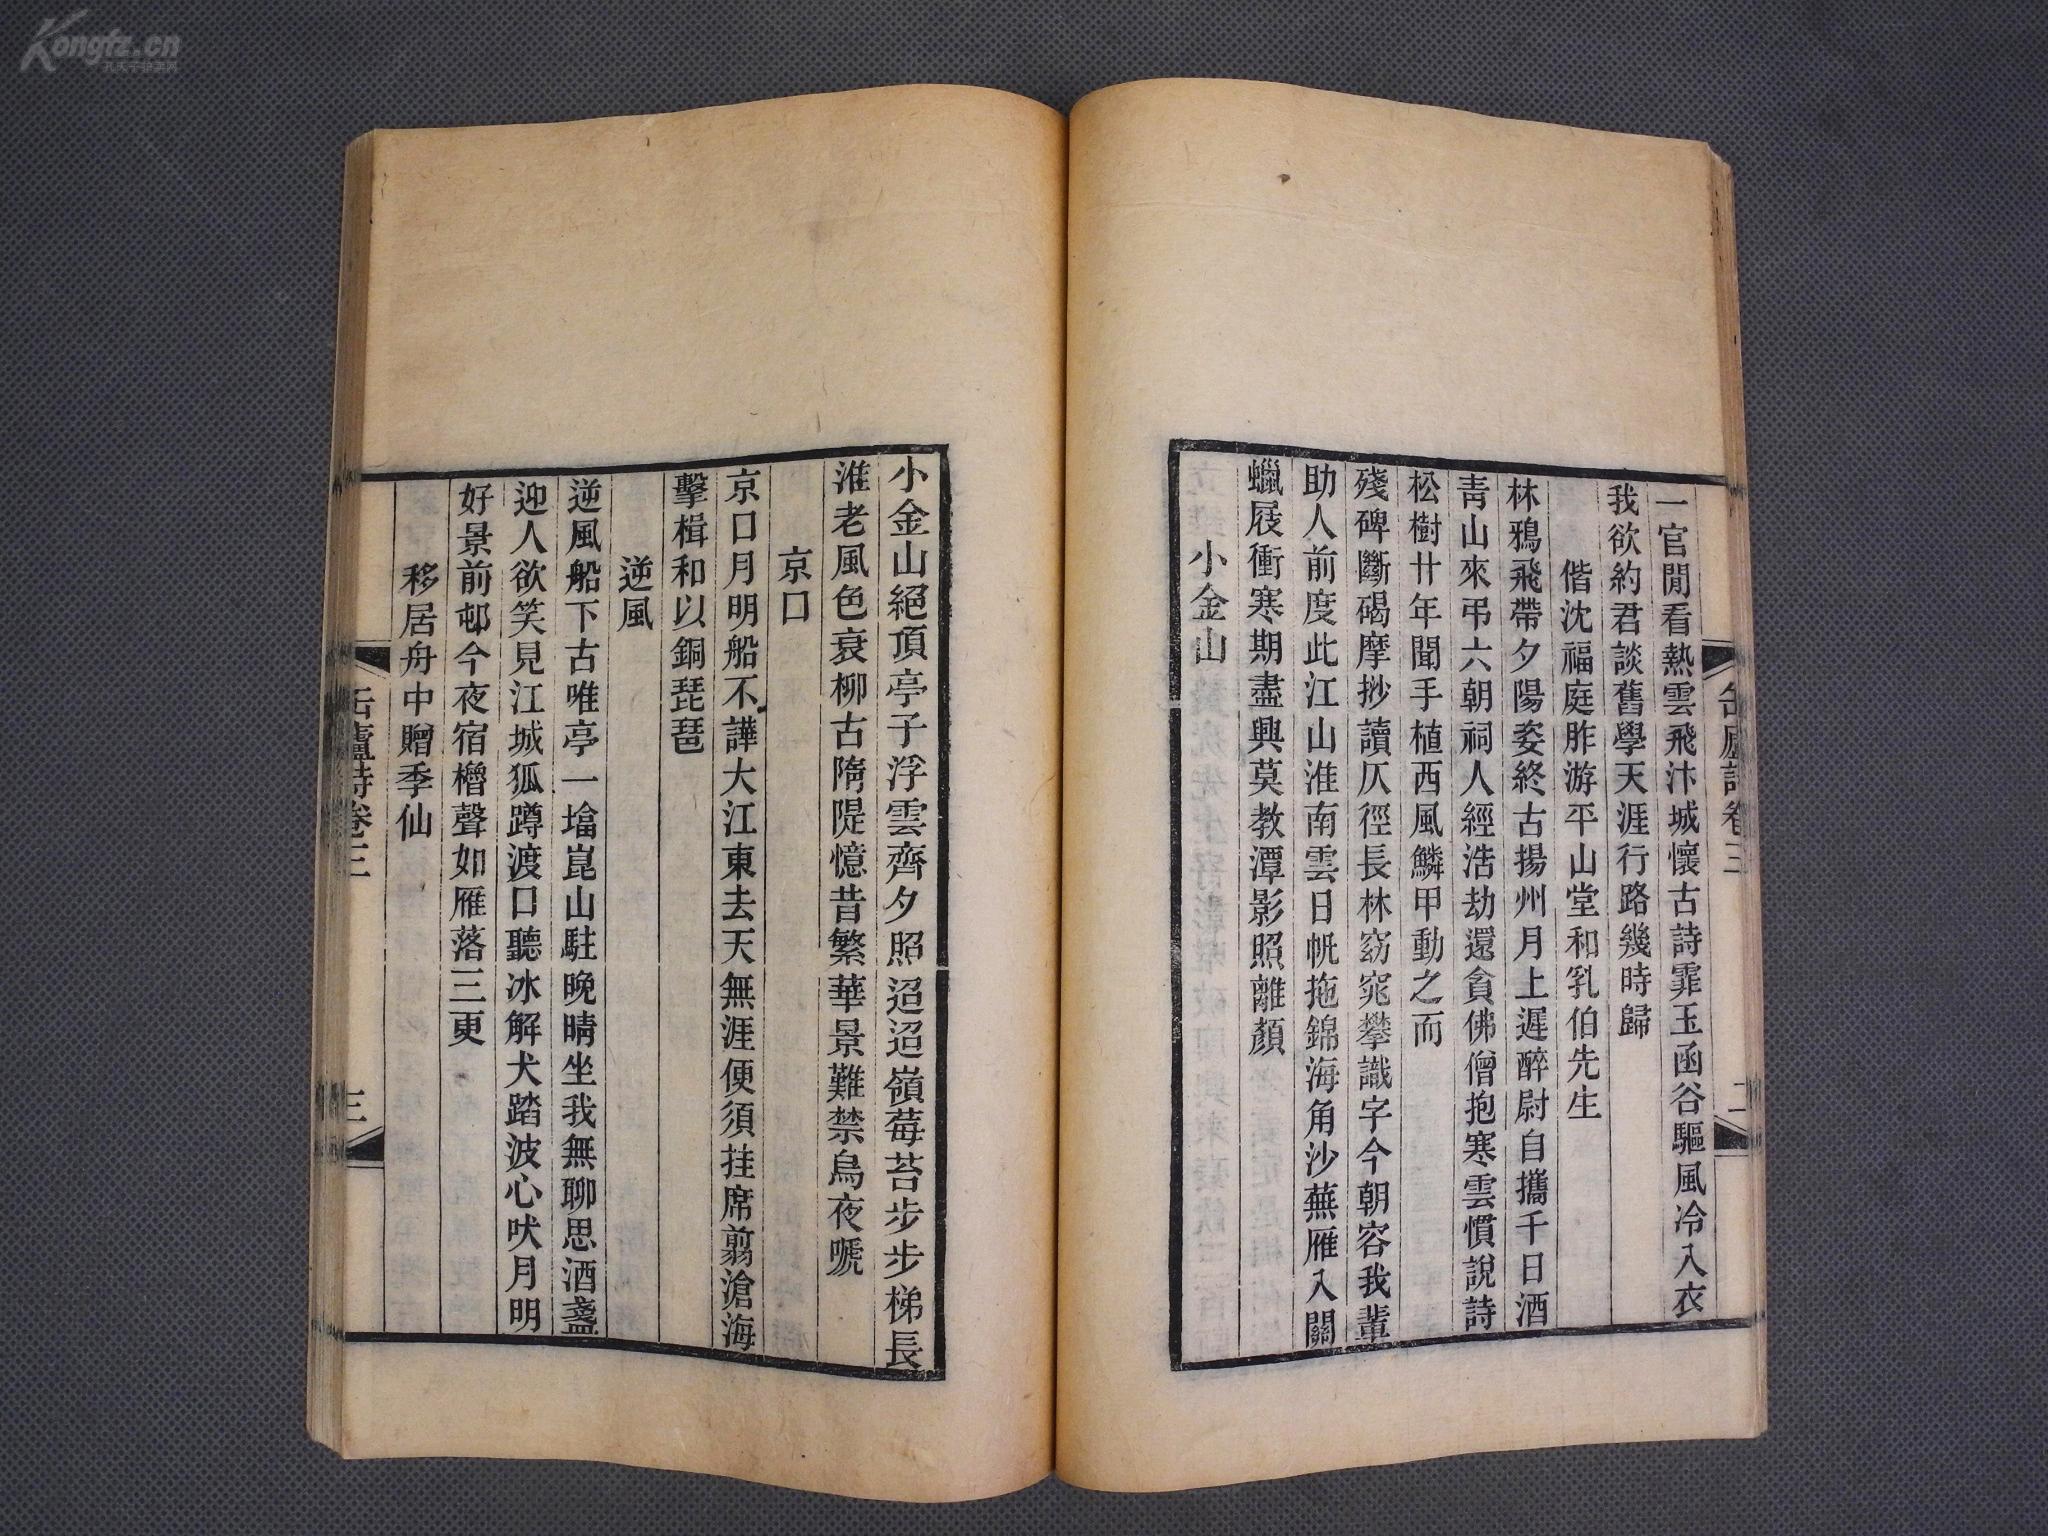 Kongfz.cn
孔夫子拍卖网
缶廬詩卷三
二
一官閒看熱雲飛汴城懷古詩霏玉函谷驅風冷入衣
我欲約君談舊學天涯行路幾時歸
偕沈福庭胙游平山堂和乳伯先生
林鴉飛帶夕陽姿終古揚州月上遲醉尉自攜千日酒
青山來弔六朝祠人經浩劫還貪佛僧抱寒雲慣說詩
松樹廿年聞手植西風鱗甲動之而
殘碑斷碣摩挱讀仄徑長林窈窕攀識字今朝容我輩
助人前度此江山淮南雲日帆拖錦海角沙蕪雁入關
蠟屐衝寒期盡興莫教潭影照離顏
小金山
小金山絕頂亭子浮雲齊夕照迢迢嶺莓苔步步梯長
淮老風色衰柳古隋隄憶昔繁華景難禁烏夜嗁
京口
京口月明船不譁大江東去天無涯便須挂席翦滄海
擊楫和以銅琵琶
逆風
逆風船下古唯亭一墖崑山駐晚晴坐我無聊思酒盞
迎人欲笑見江城狐蹲渡口聽冰解犬踏波心吠月明
好景前邨今夜宿櫓聲如雁落三更
移居舟中贈季仙
缶廬詩卷三
三